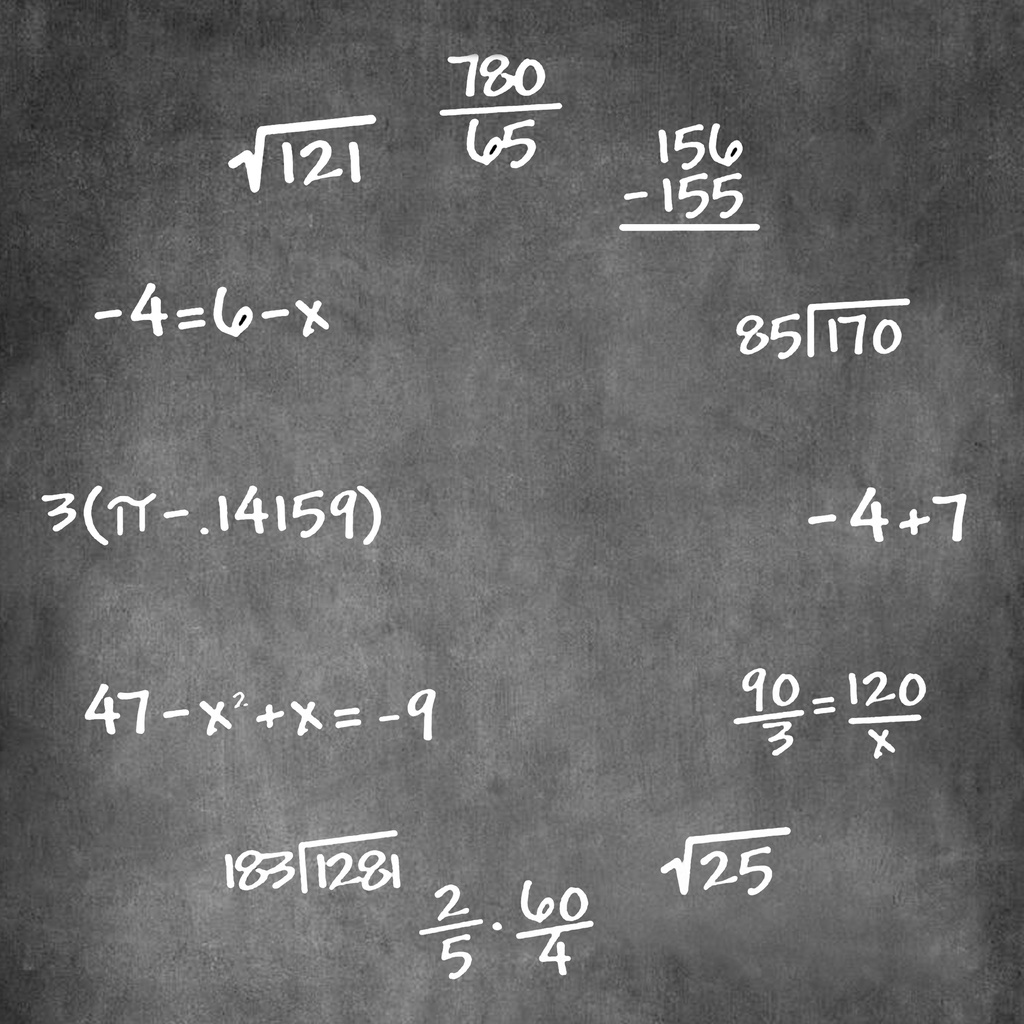 780
65
√121
156
-155
-4=6-x
85√170
3(π-.14159)
-4+7
47-x²+x=-9
90/3=120/x
183√1281
√25
2/5·60/4